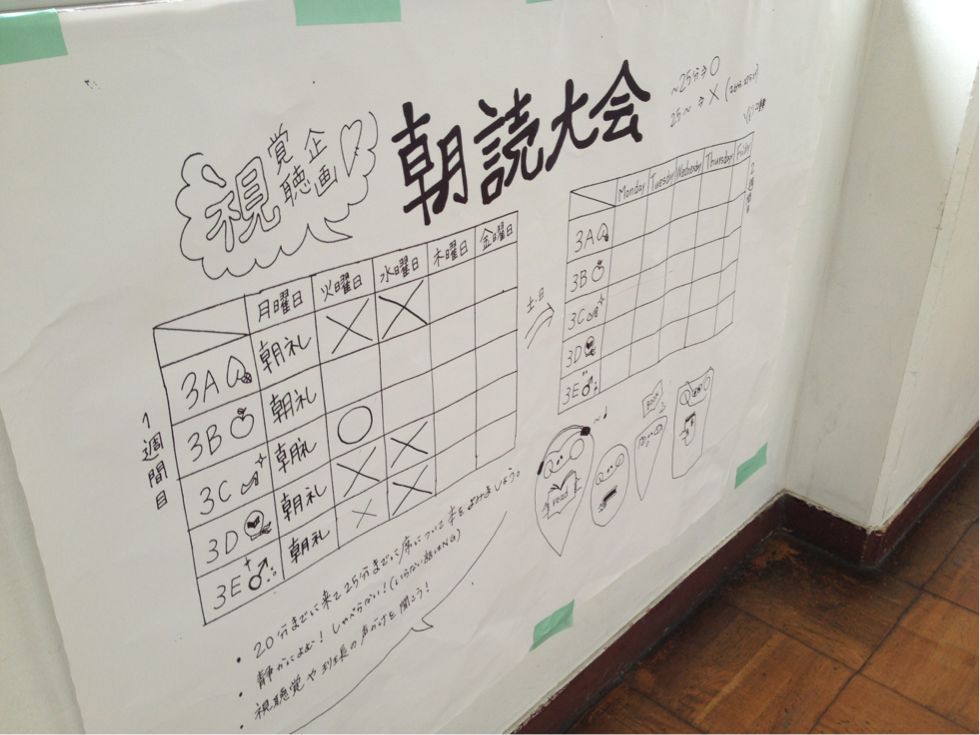 視聴覚企画♡
朝読大会
~25分⇒○
25~⇒×
1週間目
月曜日 火曜日 水曜日 木曜日 金曜日
3A 朝礼 × ×
3B 朝礼
3C 朝礼 ○
3D 朝礼 × ×
3E 朝礼 × ×
土・日
2週間目
Monday Tuesday Wednesday Thursday Friday
3A
3B
3C
3D
3E
read
・20分までに来て25分までに席について本をよみましょう。
・静かによむ!しゃべらない!(いらない話はNG)
・視聴覚や班長の声かけを聞こう!